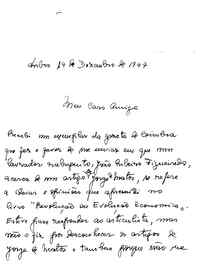 Lisboa 29 de Dezembro de 1947
Meu Caro Amigo
Recebi um exemplar da gazeta de Coimbra
que fez o favor de me enviar em que um
lavrador, João Ribeiro Figueiredo,
acerca de um artigo de Jorge Matos, se refere
a obras e opiniões que apresento no
livro "Revolução ou Evolução Económica".
Estive para responder ao articulista, mas
não o fiz por desconhecer os artigos de
Jorge de Matos e também porque não me